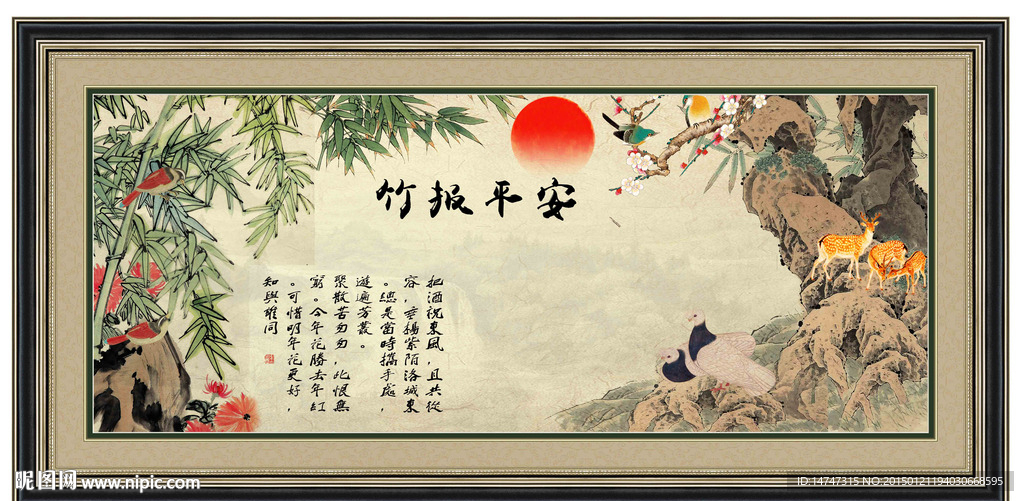 竹报平安
把酒祝東風,且共從
容,垂楊紫陌洛城東
。總是當時攜手處,
遊遍芳叢。
聚散苦匆匆,此恨無
窮。今年花勝去年紅
。可惜明年花更好,
知與誰同
昵图网 www.nipic.com
ID:14747315 NO:20150121194030668595